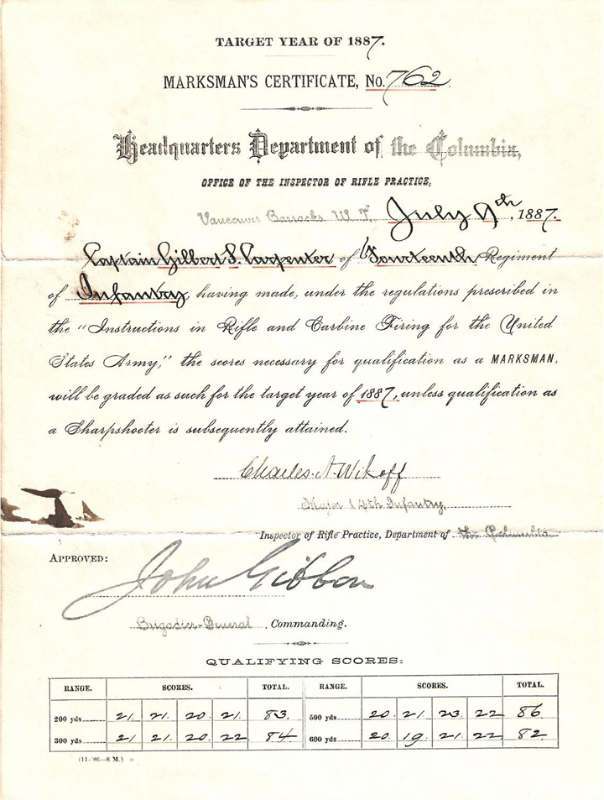 TARGET YEAR OF 1887.
MARKSMAN'S CERTIFICATE, No. 762
Headquarters Department of the Columbia,
OFFICE OF THE INSPECTOR OF RIFLE PRACTICE,
Vancouver Barracks W. T. July 9th, 1887.
Captain Gilbert S. Carpenter of Fourteenth Regiment
of Infantry, having made, under the regulations prescribed in
the "Instructions in Rifle and Carbine Firing for the United
States Army," the scores necessary for qualification as a MARKSMAN,
will be graded as such for the target year of 1887, unless qualification as
a Sharpshooter is subsequently attained.
Charles A Wikoff
Major 14th Infantry
Inspector of Rifle Practice, Department of the Columbia
APPROVED:
John Gibbon
Brigadier-General, Commanding.
QUALIFYING SCORES:
RANGE. SCORES. TOTAL. RANGE. SCORES. TOTAL.
200 yds 21. 21. 20 21. 83. 500 yds 20. 21. 23. 22 86
300 yds 21 21. 20 22 84 600 yds 20 19. 21 22 82
(11-'86-8 M.)